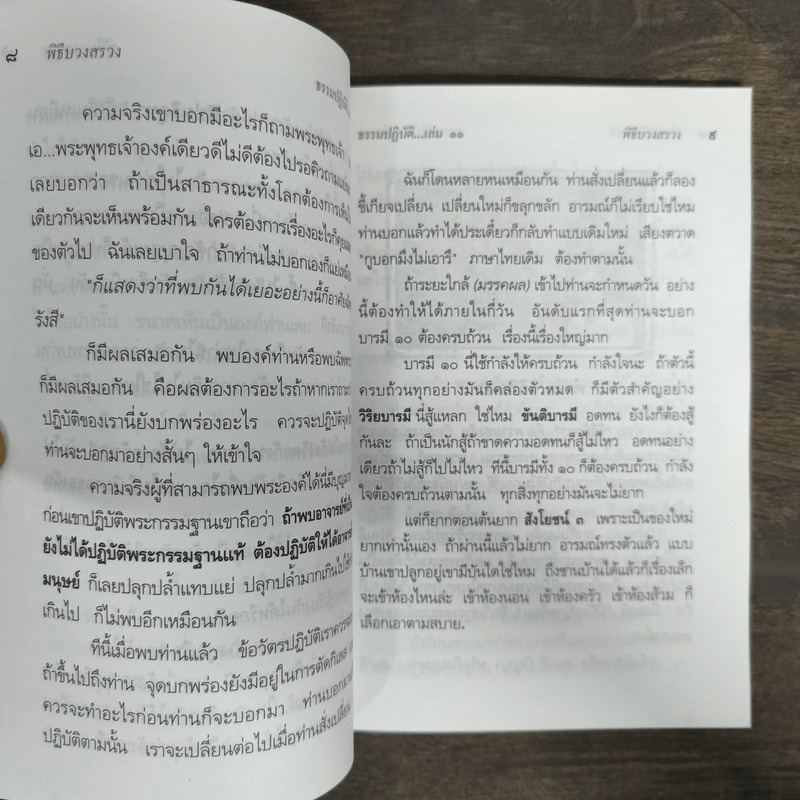 ๘ พิธีบวงสรวง
ธรรมปฏิบัติ
ความจริงเขาบอกมีอะไรก็ถามพระพุทธเจ้า
เอ...พระพุทธเจ้าองค์เดียวดีไม่ดีต้องไปรอคิวถาม
เลยบอกว่า ถ้าเป็นสาธารณะทั้งโลกต้องการเห็น
เดียวกันจะเห็นพร้อมกัน ใครต้องการเรื่องอะไรก็
ของตัวไป ฉันเลยเบาใจ ถ้าท่านไม่บอกเองก็แย่
"ก็แสดงว่าที่พบกันได้เยอะอย่างนี้ก็อาศัย
รังสี"
ก็มีผลเสมอกัน พบองค์ท่านหรือพบฉัพพ
ก็มีผลเสมอกัน คือผลต้องการอะไรถ้าหากเรา
ปฏิบัติของเรานี่ยังบกพร่องอะไร ควรจะปฏิบัติ
ท่านจะบอกมาอย่างสั้นๆ ให้เข้าใจ
ความจริงผู้ที่สามารถพบพระองค์ได้นี่มี
ก่อนเขาปฏิบัติพระกรรมฐานเขาถือว่า ถ้าพบอาจารย์
ยังไม่ได้ปฏิบัติพระกรรมฐานแท้ ต้องปฏิบัติให้ได้
มนุษย์ ก็เลยปลุกปล้ำแทบแย่ ปลุกปล้ำมากเกินไป
เกินไป ก็ไม่พบอีกเหมือนกัน
ทีนี้เมื่อพบท่านแล้ว ข้อวัตรปฏิบัติเรา
ถ้าขึ้นไปถึงท่าน จุดบกพร่องยังมีอยู่ในการตัดกิเลส
ควรจะทำอะไรก่อนท่านก็จะบอกมา ท่านบอกมา
ปฏิบัติตามนั้น เราจะเปลี่ยนต่อไปเมื่อท่านสั่งเปลี่ยน
ธรรมปฏิบัติ...เล่ม ๑๑ พิธีบวงสรวง ๙
ฉันก็โดนหลายหนเหมือนกัน ท่านสั่งเปลี่ยนแล้วก็ลอง
ขี้เกียจเปลี่ยน เปลี่ยนใหม่ก็ขลุกขลัก อารมณ์ก็ไม่เรียบใช่ไหม
ท่านบอกแล้วทำได้ประเดี๋ยวก็กลับทำแบบเดิมใหม่ เสียงตวาด
"กูบอกมึงไม่เอารึ" ภาษาไทยเดิม ต้องทำตามนั้น
ถ้าระยะใกล้ (มรรคผล) เข้าไปท่านจะกำหนดวัน อย่าง
นี้ต้องทำให้ได้ภายในกี่วัน อันดับแรกที่สุดท่านจะบอก
บารมี ๑๐ ต้องครบถ้วน เรื่องนี้เรื่องใหญ่มาก
บารมี ๑๐ นี่ใช้กำลังให้ครบถ้วน กำลังใจนะ ถ้าตัวนี้
ครบถ้วนทุกอย่างมันก็คล่องตัวหมด ก็มีตัวสำคัญอย่าง
วิริยบารมี นี่สู้แหลก ใช่ไหม ขันติบารมี อดทน ยังไงก็ต้องสู้
กันละ ถ้าเป็นนักสู้ถ้าขาดความอดทนก็สู้ไม่ไหว อดทนอย่าง
เดียวถ้าไม่สู้ก็ไปไม่ไหว ทีนี้บารมีทั้ง ๑๐ ก็ต้องครบถ้วน กำลัง
ใจต้องครบถ้วนตามนั้น ทุกสิ่งทุกอย่างมันจะไม่ยาก
แต่ก็ยากตอนต้นยาก สังโยชน์ ๓ เพราะเป็นของใหม่
ยากเท่านั้นเอง ถ้าผ่านนี้แล้วไม่ยาก อารมณ์ทรงตัวแล้ว แบบ
บ้านเขาปลูกอยู่เขามีบันไดใช่ไหม ถึงชานบ้านได้แล้วก็เรื่องเล็ก
จะเข้าห้องไหนล่ะ เข้าห้องนอน เข้าห้องครัว เข้าห้องส้วม ก็
เลือกเอาตามสบาย.